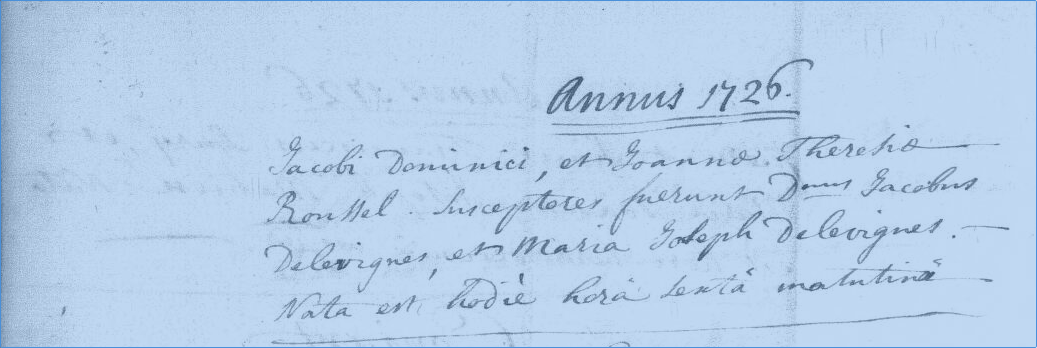 Annus 1726.
Jacobi Dominici, et Joannæ Theresiæ
Roussel. Susceptores fuerunt Dnus Jacobus
Delevignes, et Maria Joseph Delevignes.
Nata est hodiè horâ sextâ matutinâ